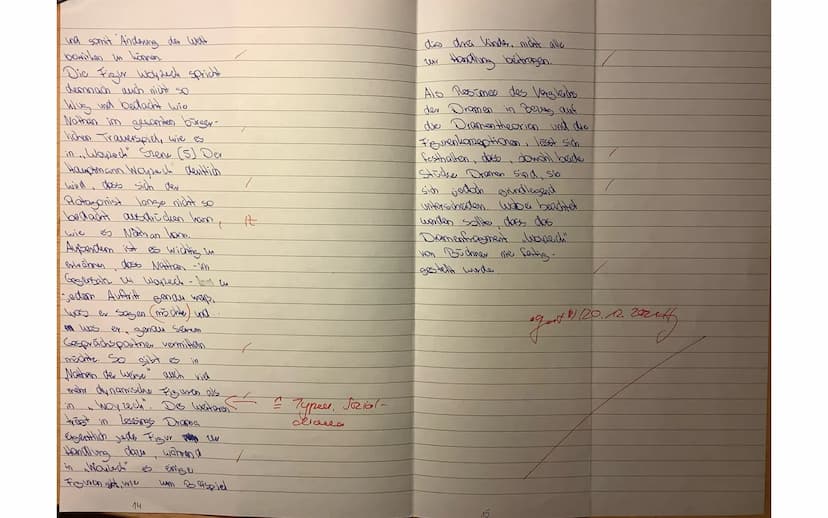 und somit Änderung der Welt
bewirken zu können
Die Figur Woyzeck spricht
demnach auch nicht so
klug und bedacht wie
Nathan im gesamten bürger-
lichen Trauerspiel, wie es
in „Woyzeck" Szene (5) Der
Hauptmann. Woyzeck deutlich
wird, dass sich der
Protagonist lange nicht so
bedacht ausdrücken kann,
wie es Nathan kann.
Außerdem ist es wichtig zu
erwähnen, dass Nathan - im
Gegensatz zu Woyzeck - in
jedem Auftritt genau weiß,
was er sagen (möchte) und
was er genau seinem
Gesprächspartner vermitteln
möchte. So gibt es in
„Nathan der Weise" auch viel
mehr dynamische Figuren als
in „Woyzeck". Des Weiteren
trägt in Lessings Drama
eigentlich jede Figur zur
Handlung dazu, während
in „Woyzeck" es einige
Figuren gibt, wie zum Beispiel
14
≙ Typen, Sozial-
drama
das drei Kinder, nicht alle
zur Handlung beitragen.
Als Resümee des Vergleichs
der Dramen in Bezug auf
die Dramentheorien und die
Figurenkonzeptionen, lässt sich
festhalten, dass, obwohl beide
Stücke Dramen sind, sie
sich jedoch grundlegend
unterscheiden. Wobei beachtet
werden sollte, dass das
Dramenfragment „Woyzeck"
von Büchner nie fertig-
gestellt wurde
20.12.
15